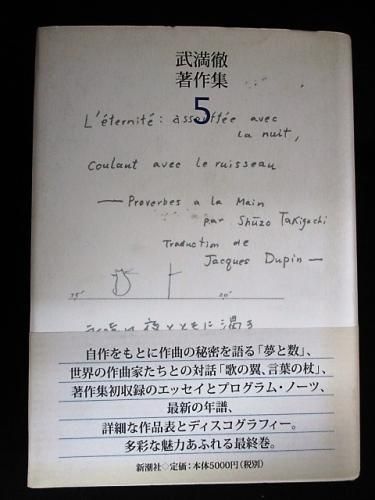 武満徹
著作集
5
L'éternité: assouffée avec
la nuit,
coulant avec le ruisseau
— Proverbes a la Main
par Shūzo Takiguchi
Traduction de
Jacques Dupin —
自作をもとに作曲の秘密を語る「夢と数」、
世界の作曲家たちとの対話「歌の翼、言葉の杖」、
著作集初収録のエッセイとプログラム・ノーツ、
最新の年譜、
詳細な作品表とディスコグラフィー。
多彩な魅力あふれる最終巻。
新潮社◇定価:本体5000円(税別)